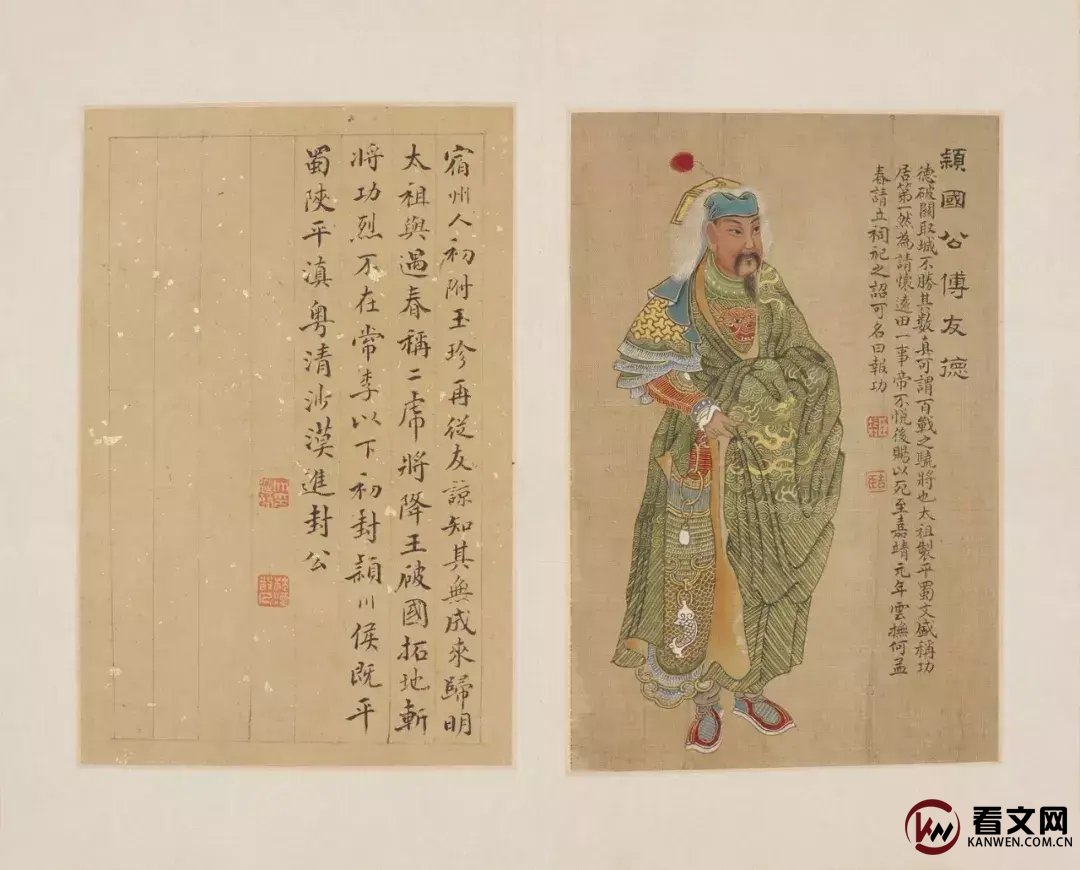 宿州人初附玉珍再從友諒知其無成來歸明
太祖與遇春稱二虎將降王破國拓地斬
將功烈不在常李以下初封潁川侯既平
蜀陝平滇粵清沙漠進封公
潁國公傅友德
德破關取城不勝其數真可謂百戰之驍將也太祖製平蜀文盛稱功
居第一然為請懷遠田一事帝不悅後賜以死至嘉靖元年雲撫何孟
春請立祠祀之詔可名曰報功
看文网
KANWEN.COM.CN